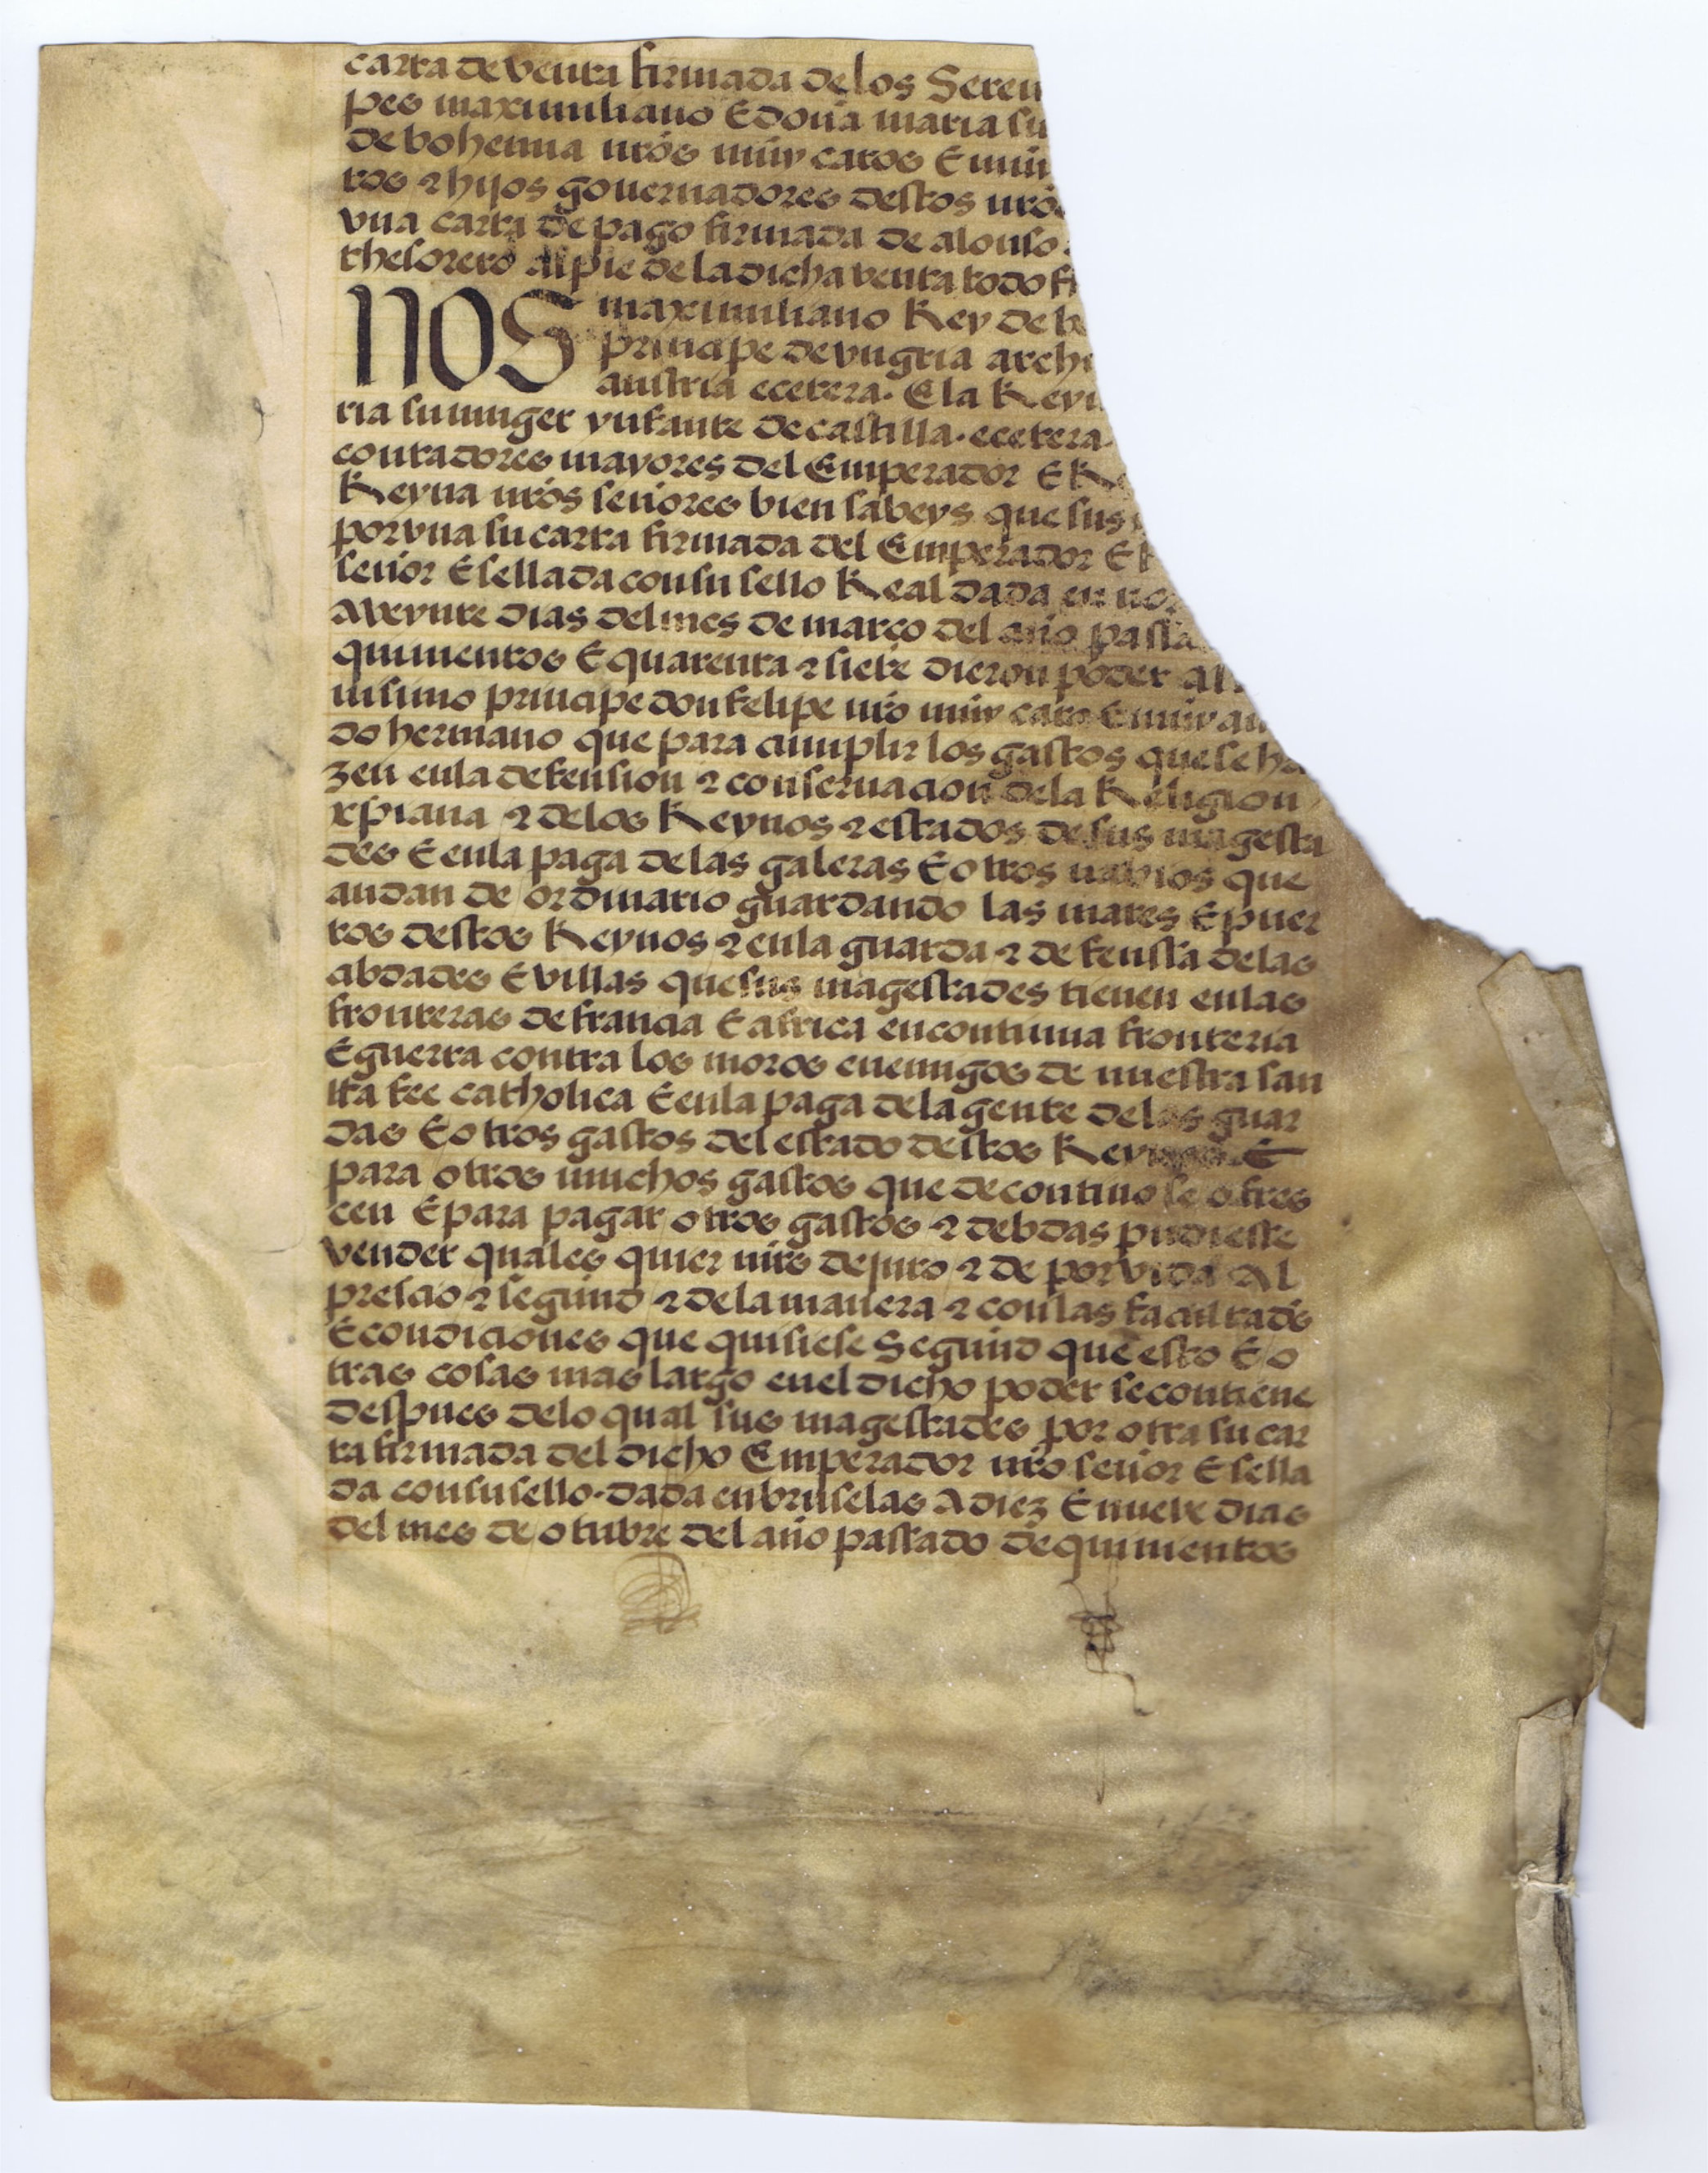 carta de venta firmada de los Seren
pes maximiliano E doña maria su
de bohemia nrõs muy caros E muy
ros e hijos governadores destos nrõs
vna carta de pago firmada de alonso
thesorero al pie de la dicha venta todo
NOS maximiliano Rey de
principe de vngria arch
austria ecetera. E la Reyn
ria su muger ynfante de castilla. ecetera.
contadores mayores del Emperador E R
Reyna nrõs señores bien sabeys que sus
por vna su carta firmada del Emperador E
señor E sellada con su sello Real dada en
A veynte dias del mes de março del año passa
quinientos E quarenta e siete dieron poder al
nisimo principe don felipe nrõ muy caro E muy am
do hermano que para cumplir los gastos que se ha
zen en la defension e conseruacion de la Religion
xpiana e de los Reynos e estados de sus magesta
des E en la paga de las galeras E otros navios que
andan de ordinario guardando las mares E puer
tos destos Reynos e en la guarda e defenssa de las
cibdades E villas que sus magestades tienen en las
fronteras de francia E africa en continua fronteria
E guerra contra los moros enemigos de nuestra san
tta fee catholica E en la paga de la gente de las guar
das E otros gastos del estado destos Reynos E
para otros muchos gastos que de contino se ofres
cen E para pagar otros gastos e debdas pudiesse
vender quales quier mrs de juro e de por vida Al
prescio e segund e de la manera e con las facultads
E condiciones que quisiese Segund que esto E o
tras cosas mas largo en el dicho poder se contiene
despues de lo qual sus magestades por otra su car
ta firmada del dicho Emperador nrõ señor E sella
da con su sello. dada en bruselas A diez E nueve dias
del mes de otubre del año passado de quinientos